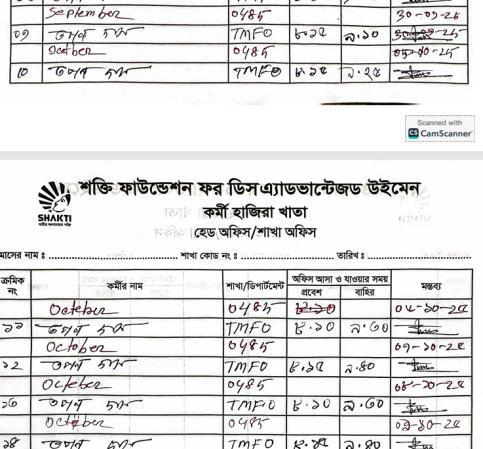 September 0485 30-09-25
০৯ তপন দাস TMFO ৮.১৫ ৯.১০
October 0485
১০ তপন দাস TMFO ৮.১৫ ৯.২৫
Scanned with
CS CamScanner
শক্তি ফাউন্ডেশন ফর ডিসএ্যাডভান্টেজড উইমেন
SHAKTI
কর্মী হাজিরা খাতা
হেড অফিস/শাখা অফিস
মাসের নাম ঃ শাখা কোড নং ঃ তারিখ ঃ
ক্রমিক নং কর্মীর নাম শাখা/ডিপার্টমেন্ট অফিস আসা ও যাওয়ার সময় মন্তব্য
প্রবেশ বাহির
October 0485
১১ তপন দাস TMFO ৮.১০ ৯.৩০
October 0485
১২ তপন দাস TMFO ৮.১৫ ৯.৪০
October 0485
১৩ তপন দাস TMFO ৮.১০ ৯.৩০
October 0485
১৪ তপন দাস TMFO ৮.১৫ ৯.৪০